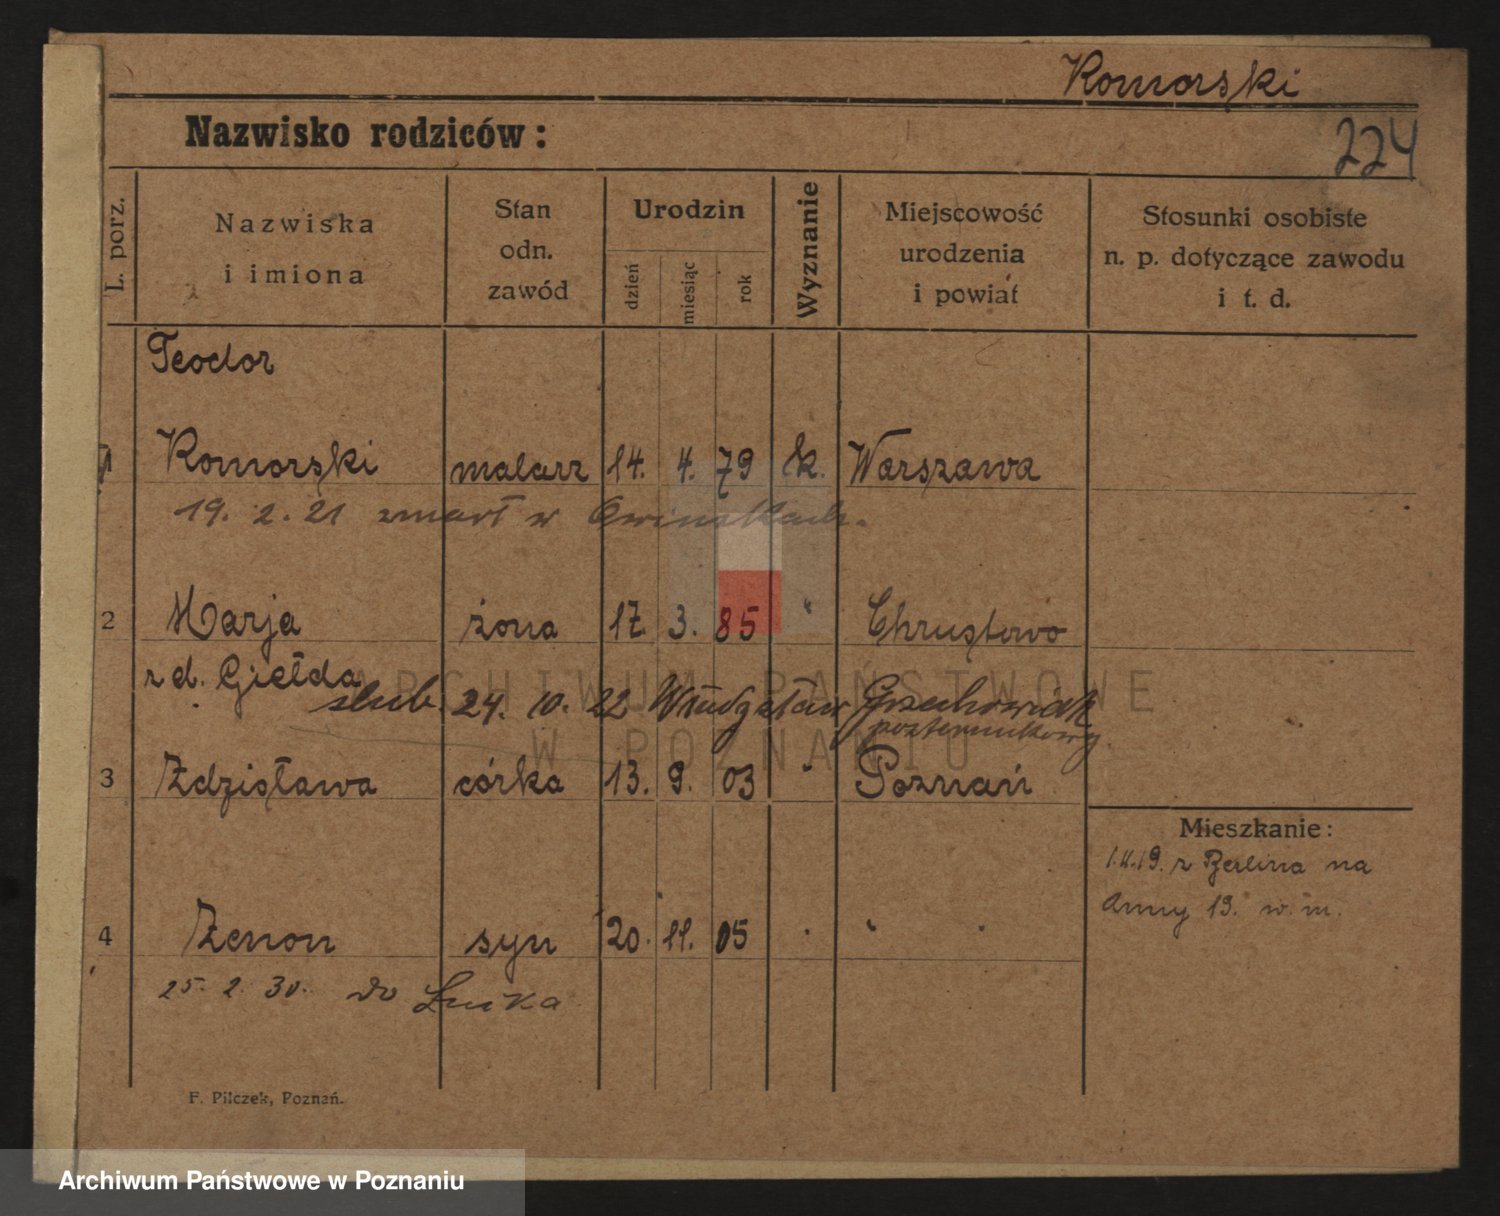 Komorski
Nazwisko rodziców:
224
L. porz.
Nazwiska
i imiona
Stan
odn.
zawód
Urodzin
dzień
miesiąc
rok
Wyznanie
Miejscowość
urodzenia
i powiat
Stosunki osobiste
n. p. dotyczące zawodu
i t. d.
Teodor
1 Komorski malarz 14. 4. 79 k. Warszawa
19. 2. 21 zmarł w Owinskach.
2 Marja żona 17. 3. 85 " Chrustowo
z d. Giełda
ślub. 24. 10. 22 Władysław Grzechowiak
ARCHIWUM PAŃSTWOWE
W POZNANIU
3 Zdzisława córka 13. 9. 03 " Poznań
Mieszkanie:
z Berlina na
Anny 19. w. m.
4 Zenon syn 20. 11. 05 " " "
25. 2. 30. do
F. Pilczek, Poznań.
Archiwum Państwowe w Poznaniu